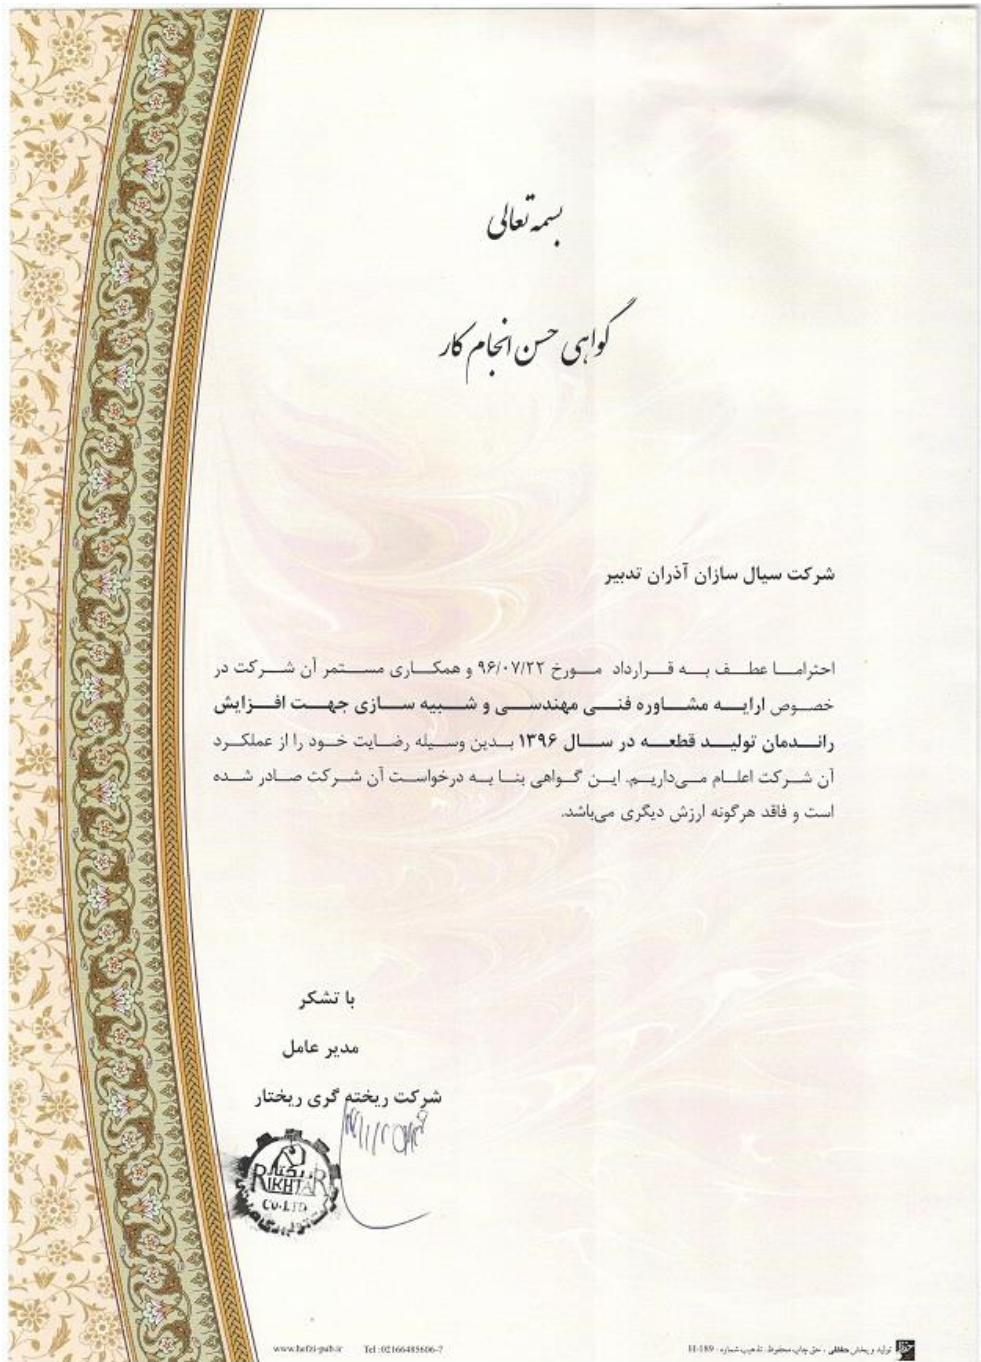 بسمه تعالی
گواهی حسن انجام کار
شرکت سیال سازان آذران تدبیر
احتراما عطف به قرارداد مورخ ۹۶/۰۷/۲۲ و همکاری مستمر آن شرکت در
خصوص ارایه مشاوره فنی مهندسی و شبیه سازی جهت افزایش
راندمان تولید قطعه در سال ۱۳۹۶ بدین وسیله رضایت خود را از عملکرد
آن شرکت اعلام می‌داریم. این گواهی بنا به درخواست آن شرکت صادر شده
است و فاقد هرگونه ارزش دیگری می‌باشد.
با تشکر
مدیر عامل
شرکت ریخته گری ریختار
RIKHTAR
CO.LTD
www.hefzi-pub.ir Tel :02166485606-7
تولید و پخش حفظی ، حق چاپ محفوظ . تذهیب شماره : H-189